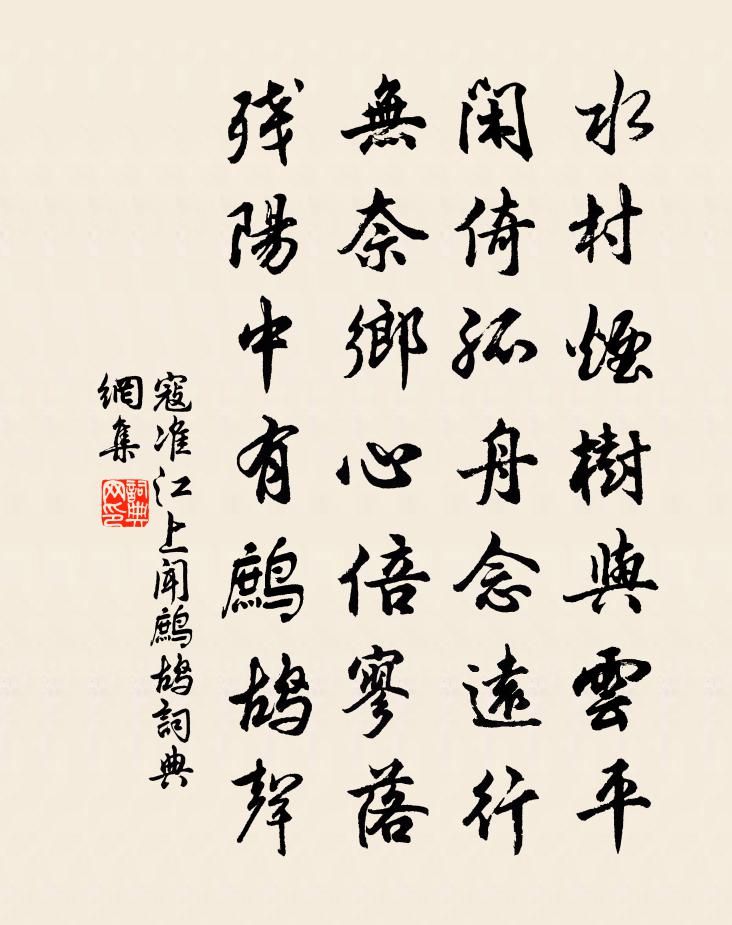 水村煙樹與雲平
閑倚孤舟念遠行
無奈鄉心倍寥落
残陽中有鷓鴣聲
寇准江上闻鷓鴣詞典
網集
詞典
网印